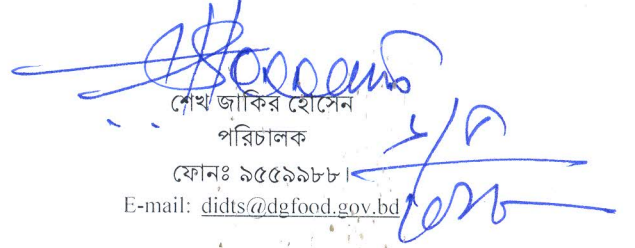 শেখ জাকির হোসেন
পরিচালক
ফোনঃ ৯৫৫৯৯৮৮।
E-mail: didts@dgfood.gov.bd